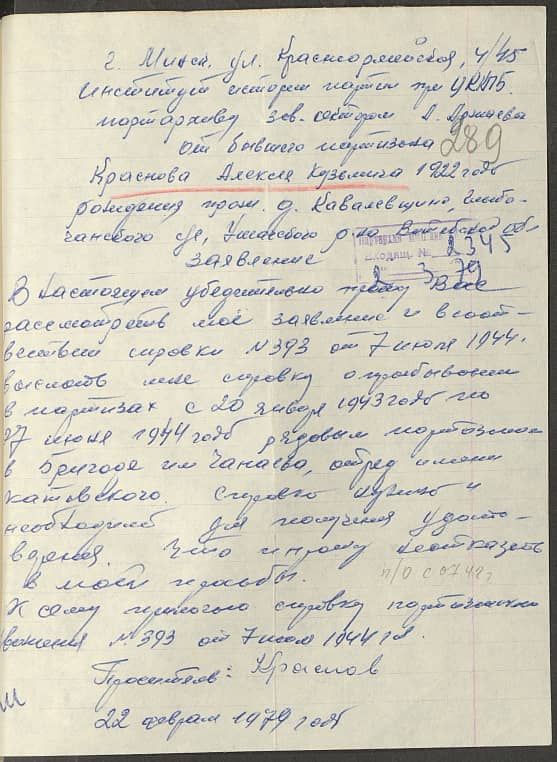 г. Минск. ул. Красноармейская, 4/45
Институт истории партии при ЦККПБ.
партархив зав. сектором
от бывшего партизана 289
Краснова Алексея Кузьмича 1922 года
рождения прож. д. Кавалевщино, Глыбо-
чанского с/с, Ушачского р-на Витебской обл
Партархив
Входящ. № 2345
2 3 79
Заявление
В настоящем убедительно прошу Вас
рассмотреть моё заявление и в соот-
ветствии справки №393 от 7 июля 1944.
выслать мне справку о пребывании
в партизах с 20 января 1943 года по
27 июня 1944 года рядовым партизаном
в Бригаде им Чапаева, отряд имени
Катовского. Справка нужна и
необходима для получения удосто-
верения. Что и прошу не отказать
в моей прозьбы.
п/о с 07.42г
К сему прилагаю справку партизанского
№393 от 7 июля 1944 г.
Проситель: Краснов
22 февраля 1979 года